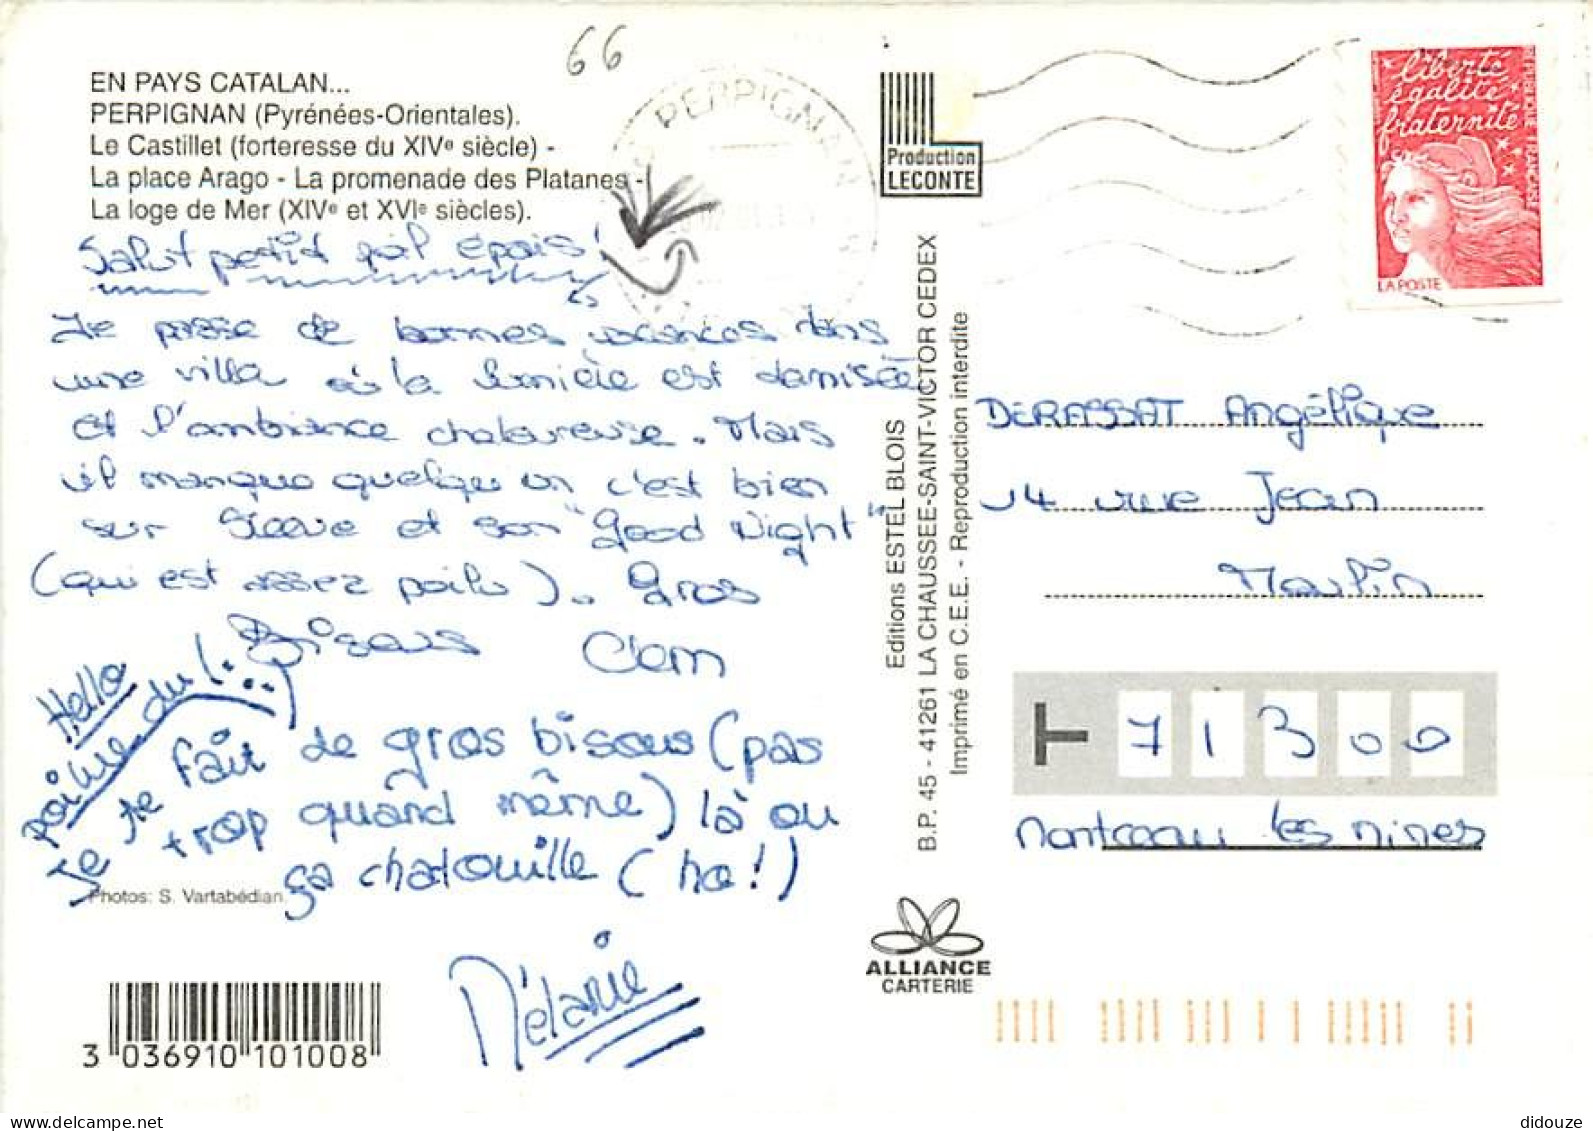 66
EN PAYS CATALAN...
PERPIGNAN (Pyrénées-Orientales).
Le Castillet (forteresse du XIVe siècle) -
La place Arago - La promenade des Platanes -
La loge de Mer (XIVe et XVIe siècles).
Salut petit poil épais !
Je passe de bonnes vacances dans
une villa où la lumière est tamisée
et l'ambiance chaleureuse. Mais
il manque quelqu un c'est bien
sur Steeve et son "Good Night"
(qui est assez poilu). Gros
Bisous Clem
Hello
poilue du
Je te fait de gros bisous (pas
trop quand même) là ou
ça chatouille (ha!)
Mélanie
Photos: S. Vartabédian.
3 036910 101008
PERPIGNAN
Production
LECONTE
Editions ESTEL BLOIS
B.P. 45 - 41261 LA CHAUSSEE-SAINT-VICTOR CEDEX
Imprimé en C.E.E. - Reproduction interdite
ALLIANCE
CARTERIE
liberté
égalité
fraternité
REPUBLIQUE FRANÇAISE
LA POSTE
DERASSAT Angélique
14 rue Jean
Moulin
71300
Montceau les mines
didouze